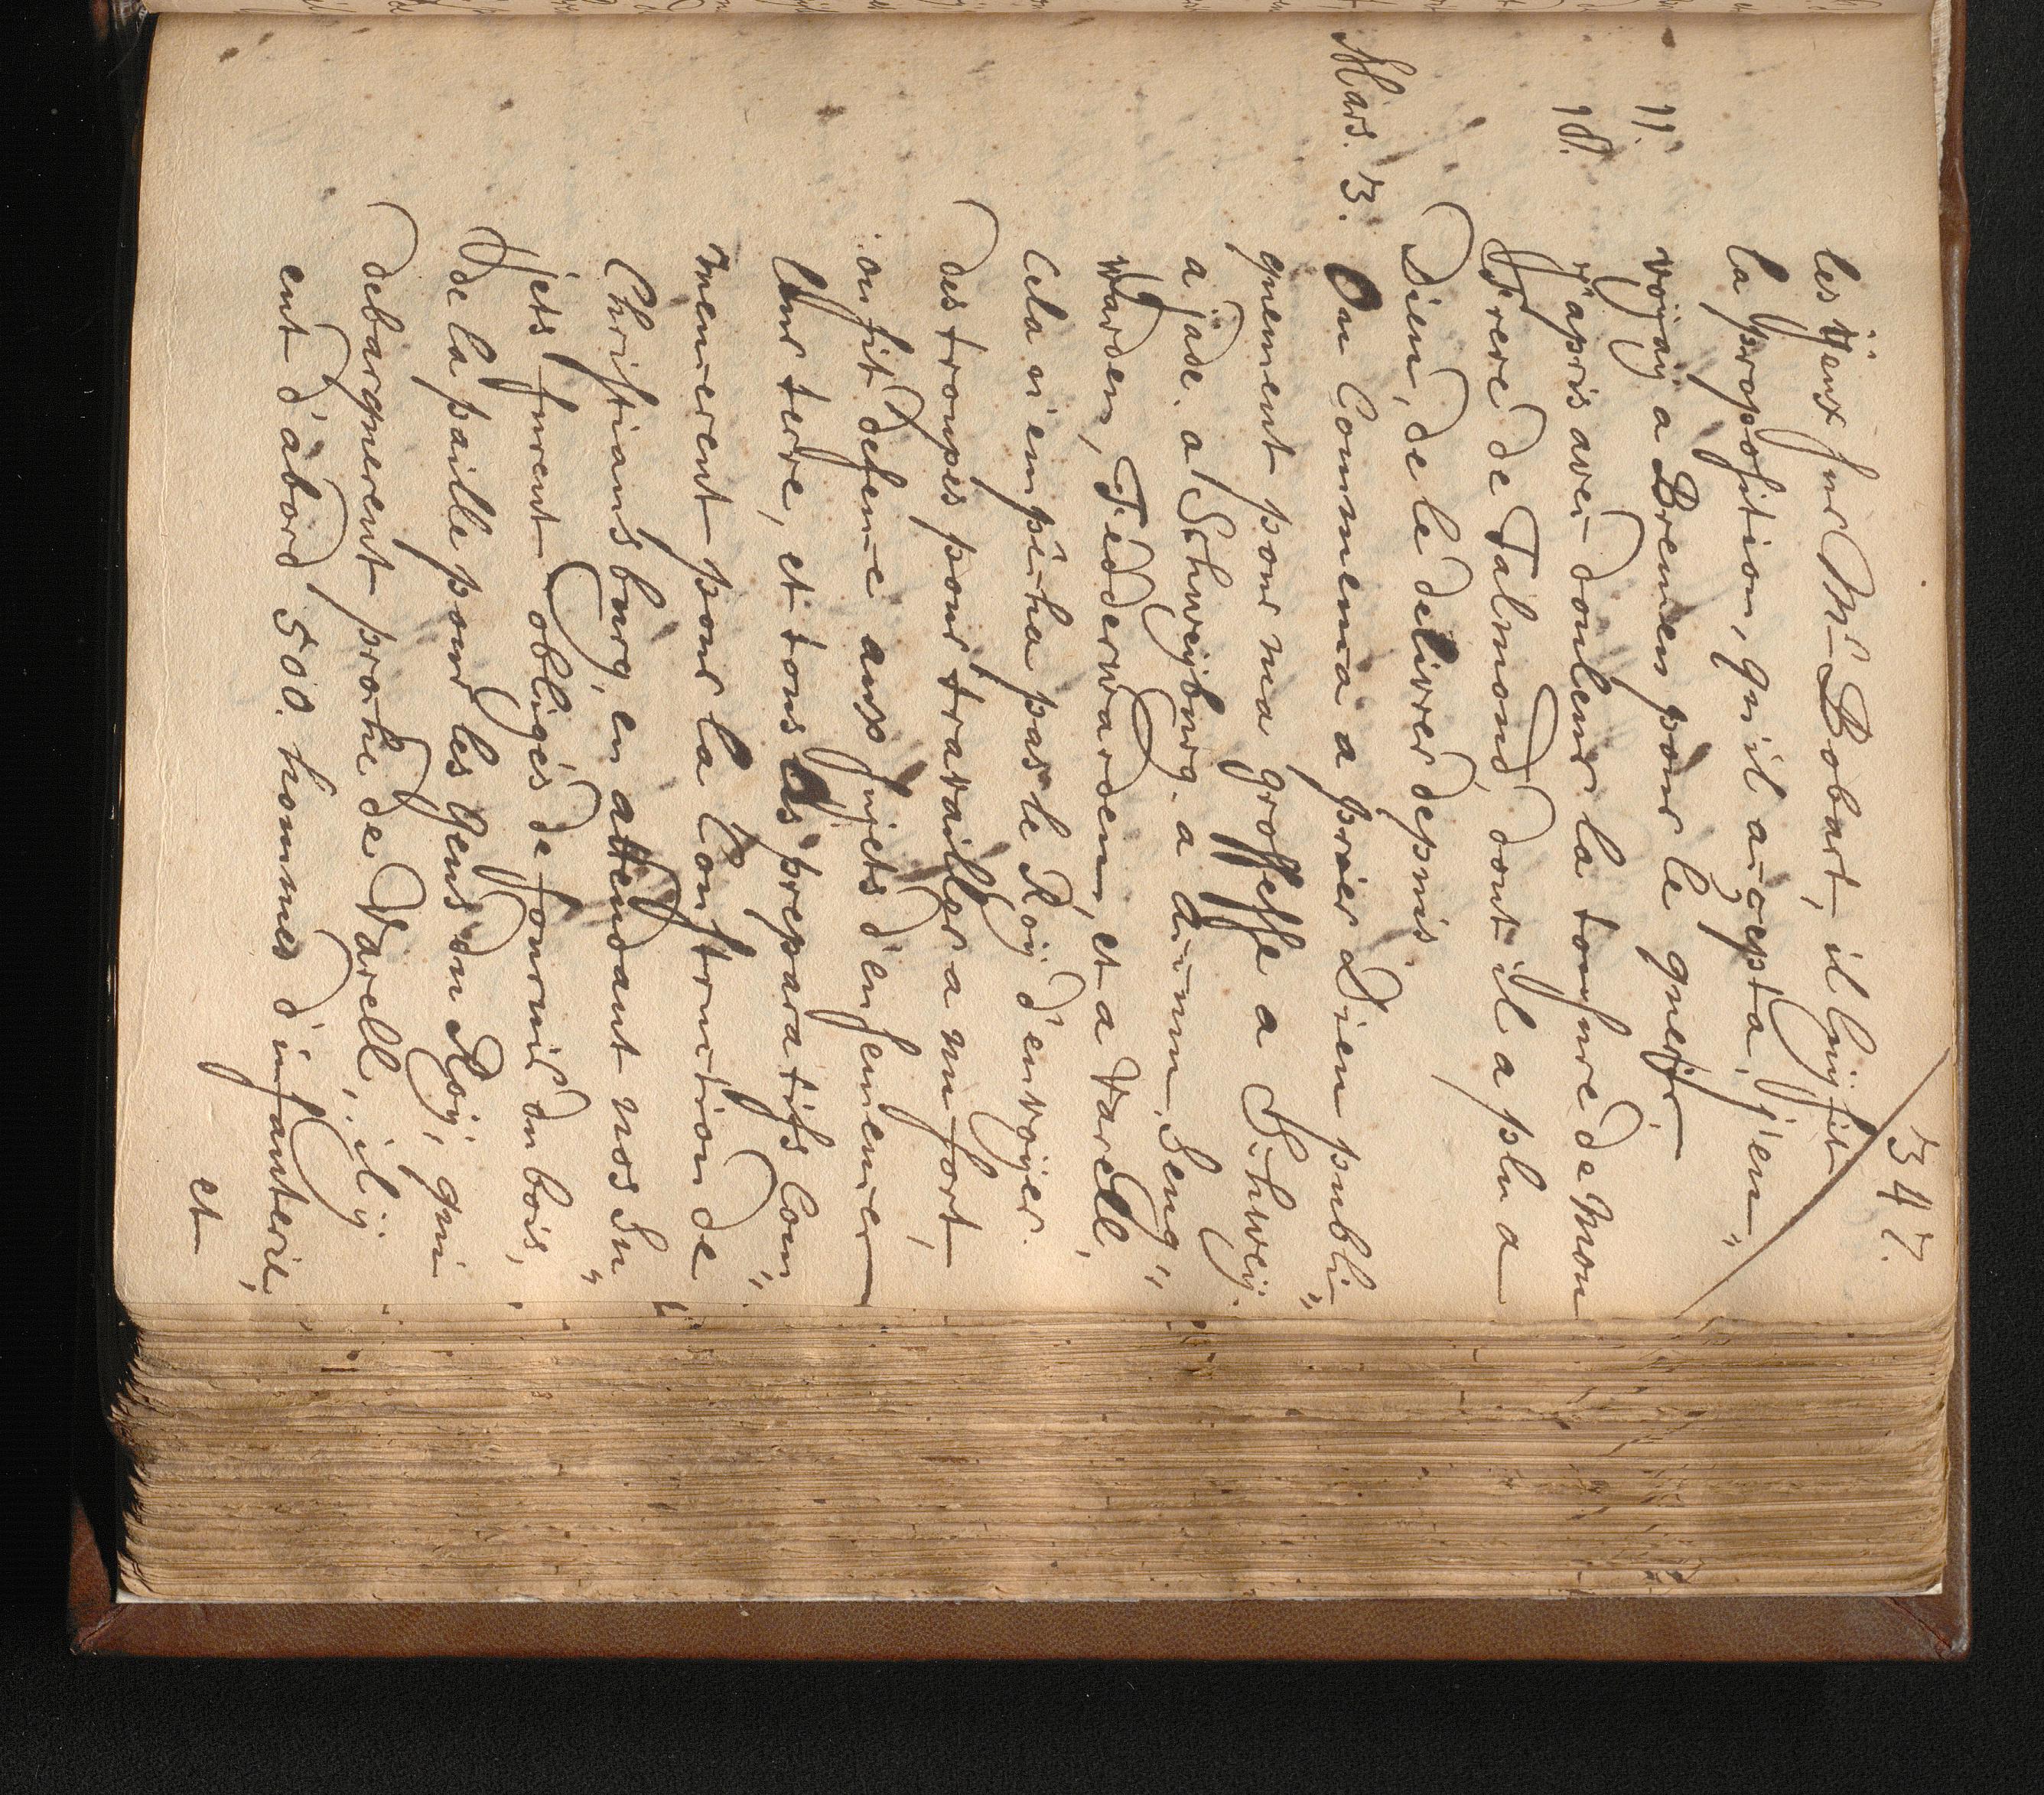 347.
les ÿeux sur Mr Bobart, il luy fit
la proposition, qu'il accepta, j'en"
11. voÿay a Bremen pour le quester
18. j'apris avec douleur la tonsure de Mon
Frere de Talmond, dont il a plu a
Dieu, de le delivrer depuis.
Mars. 3. On Commença a prier Dieu publi"
quement pour ma grossesse a Schweÿ.
a jade. a Schweÿburg. a
Warden, Fedderwarden, et a Varell,
Cela n'empécha pas le Roÿ d'envoÿer
des troupes pour travailler a un fort,
on fit defence aux sujets d'ensemencer
leur terre, et tous les preparatifs Com"
mencerent pour la Construction de
Christiansburg, en attendant nos Su"
jets furent obligés de fournir du bois,
de la paille pour les Gens du Roÿ, qui
debarquerent proche de Varell, il ÿ
eut d'abord 500. hommes d'infanterie,
et